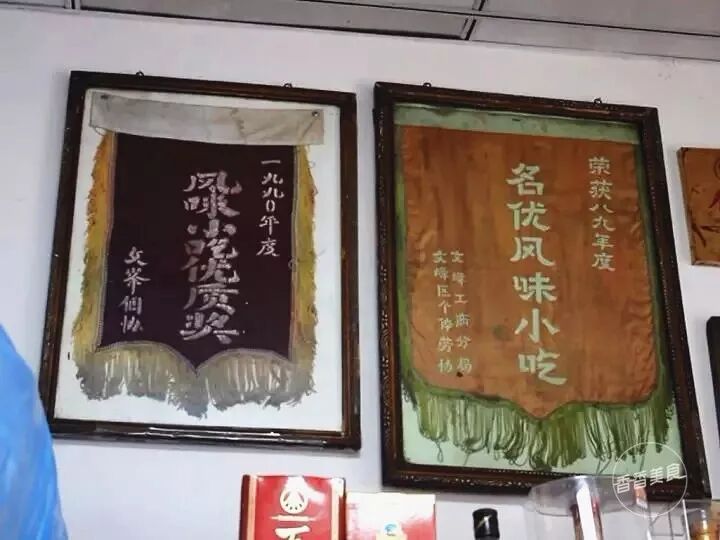 一九九〇年度
风味小吃优质奖
文峯個协
荣获八九年度
名优风味小吃
文峰工商分局
文峰区个体劳协
香香美食